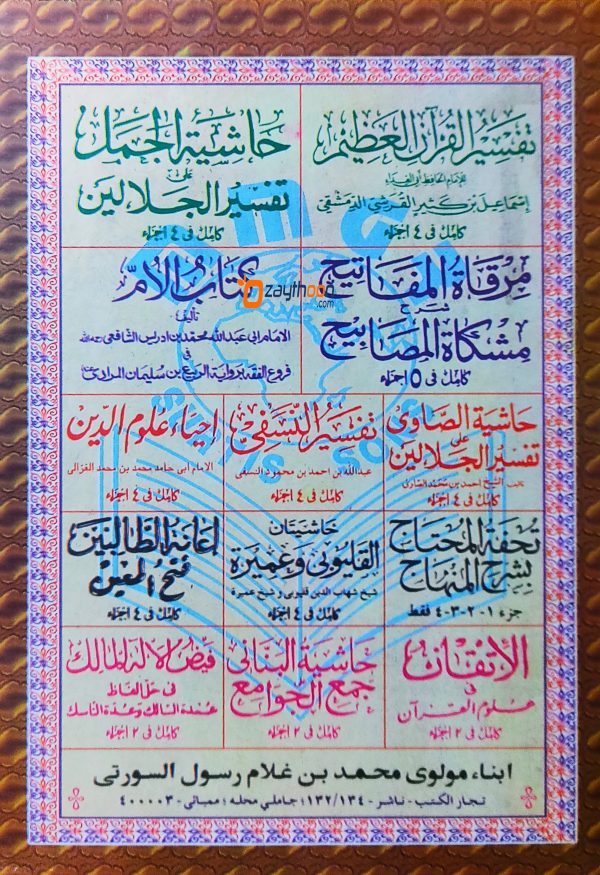 تفسير القرآن العظيم
للإمام الحافظ أبي الفداء
إسماعيل بن كثير القرشي الدمشقي
كامل في ٤ أجزاء
حاشية الجمل
على
تفسير الجلالين
كامل في ٤ أجزاء
مرقاة المفاتيح
شرح
مشكاة المصابيح
كامل في ٥ أجزاء
كتاب الأم
تأليف
الامام ابى عبد الله محمد بن ادريس الشافعى رحمه الله
فى
فروع الفقه برواية الربيع بن سليمان المرادى
zaythoon
حاشية الصاوى
على
تفسير الجلالين
الشيخ احمد بن محمد الصاوى
كامل في ٤ أجزاء
تفسير النسفي
عبدالله بن احمد بن محمود النسفى
كامل في ٤ أجزاء
إحياء علوم الدين
الامام أبى حامد محمد بن محمد الغزالى
كامل في ٤ أجزاء
تحفة المحتاج
بشرح المنهاج
جزء ١-٢-٣-٤ فقط
حاشيتان
القليوبى وعميرة
شيخ شهاب الدين قليوبى و شيخ عميرة
كامل في ٤ أجزاء
إعانة الطالبين
فتح المعين
كامل في ٤ أجزاء
الإتقان
في
علوم القرآن
كامل في ٢ أجزاء
حاشية البنانى
جمع الجوامع
كامل في ٢ أجزاء
فيض الاله المالك
فى حل الفاظ
عمدة السالك وعدة الناسك
كامل في ٢ أجزاء
ابناء مولوى محمد بن غلام رسول السورتى
تجار الكتب - ناشر - ١٣٢/١٣٤؛ جاملي محله؛ ممبائي - ٤٠٠٠٠٣